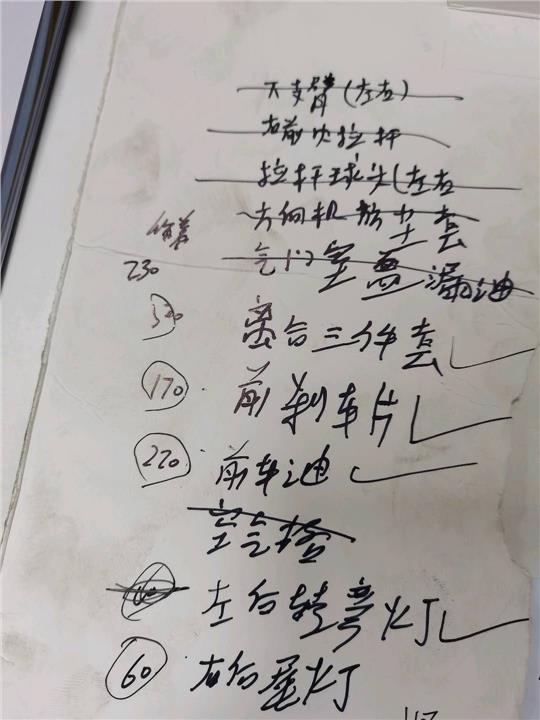 下支臂(左右)
右前内拉杆
拉杆球头(左右
方向机防尘套
230 气门室盖漏油
离合三件套
170 前刹车片
220 前车油
空气格
左后转弯灯
60 右后尾灯